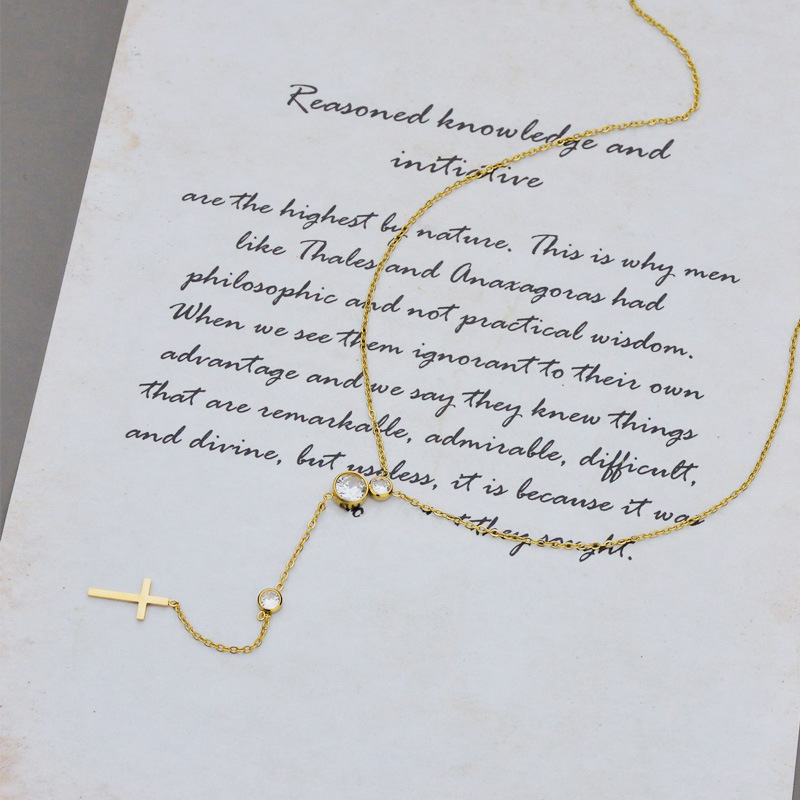 Reasoned knowledge and
initiative
are the highest by nature. This is why men
like Thales and Anaxagoras had
philosophic and not practical wisdom.
When we see them ignorant to their own
advantage and we say they knew things
that are remarkable, admirable, difficult,
and divine, but useless, it is because it was
they sought.